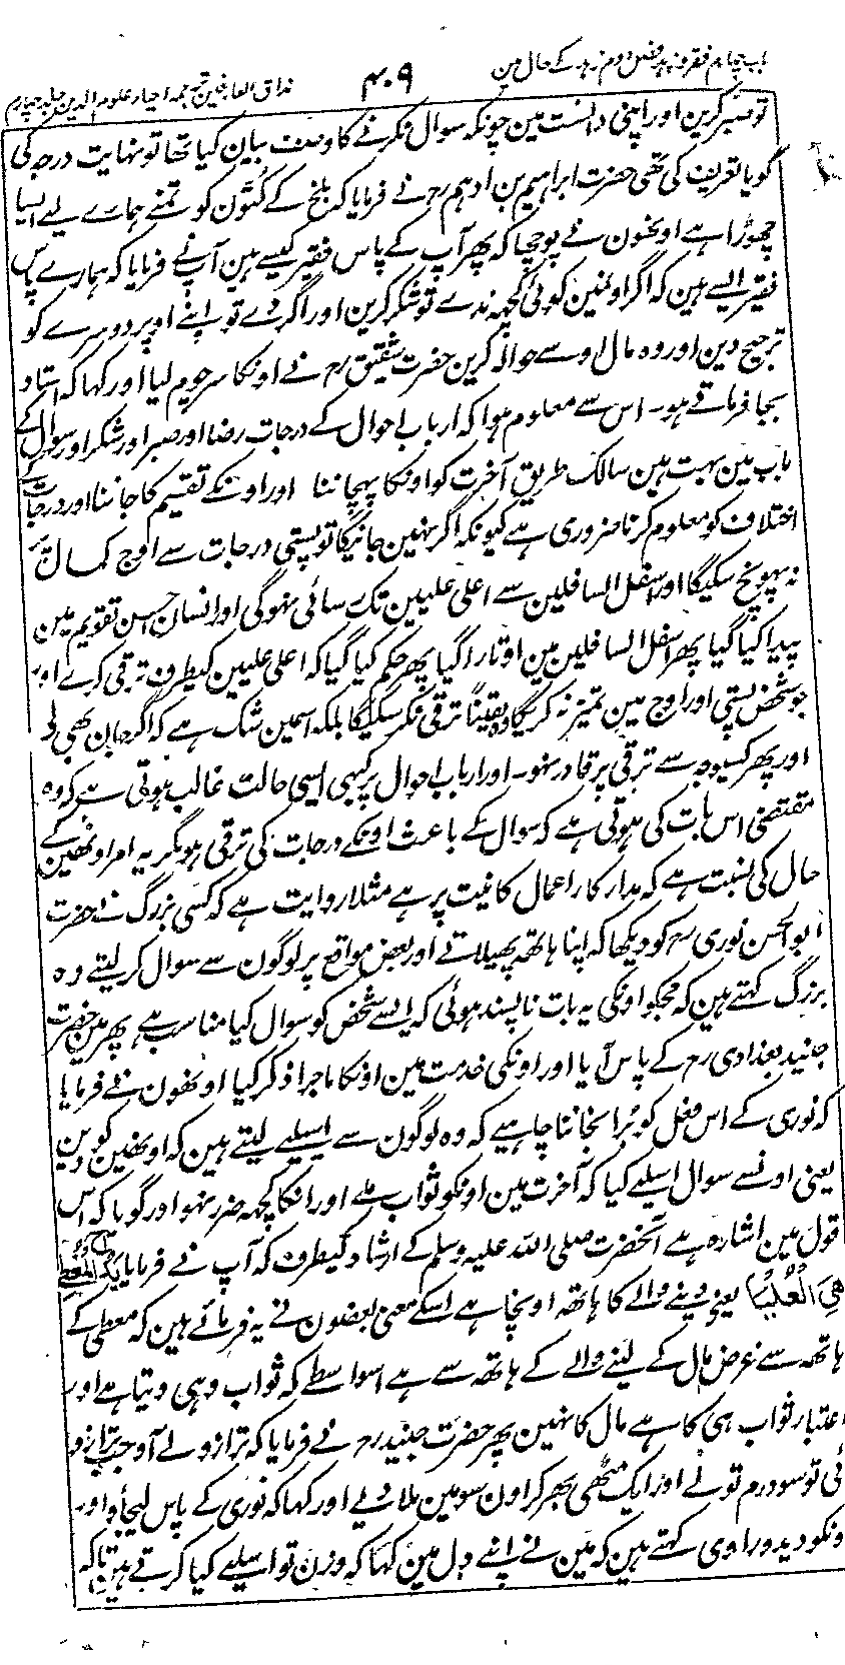 باب چہارم فقر و زہد فصل دوم زہد کے حال مین
۴۰۹
مذاق العارفین ترجمہ احیاء علوم الدین جلد چہارم
تو صبر کرین اور اپنی دانست مین چونکہ سوال نکرنے کا وصف بیان کیا تھا تو نہایت درجہ کی
گویا تعریف کی تھی حضرت ابراہیم بن ادہم رح نے فرمایا کہ بلخ کے کُتّون کو تمنے ہمارے لیے ایسا
چھوڑا ہے اونھون نے پوچھا کہ پھر آپ کے پاس فقیر کیسے ہین آپ نے فرمایا کہ ہمارے پاس
فقیر ایسے ہین کہ اگر اونھین کوئی کچھہ ندے تو شکر کرین اور اگر دے تو اپنے اوپر دوسرے کو
ترجیح دین اور وہ مال اوسے حوالہ کرین حضرت شقیق رح نے اونکا سر چوم لیا اور کہا کہ استاد
بجا فرماتے ہو۔ اس سے معلوم ہوا کہ ارباب احوال کے درجات رضا اور صبر اور شکر اور سوال کے
باب مین بہت ہین سالک طریق آخرت کو اونکا پہچاننا اور اونکے تقسیم کا جاننا اور درجات کے
اختلاف کو معلوم کرنا ضروری ہے کیونکہ اگر نہین جانیگا تو پستی درجات سے اوج کمال پر
نہ پہونچ سکیگا اور اسفل السافلین سے اعلی علیین تک رسائی نہوگی اور انسان احسن تقویم مین
پیدا کیا گیا پھر اسفل السافلین مین اوتارا گیا پھر حکم کیا گیا کہ اعلی علیین کیطرف ترقی کرے اور
جو شخص پستی اور اوج مین تمیز نہ کریگا وہ یقیناً ترقی نکر سکیگا بلکہ اسمین شک ہے کہ اگر جان بھی لے
اور پھر کسیوجہ سے ترقی پر قادر نہو۔ اور ارباب احوال پر کبھی ایسی حالت غالب ہوتی ہے کہ وہ
مقتضی اس بات کی ہوتی ہے کہ سوال کے باعث اونکے درجات کی ترقی ہو مگر یہ امر اونھین کے
حال کی نسبت ہے کہ مدار کار اعمال کا نیت پر ہے مثلا روایت ہے کہ کسی بزرگ نے حضرت
ابو الحسن نوری رح کو دیکھا کہ اپنا ہاتھہ پھیلاتے اور بعض مواقع پر لوگون سے سوال کر لیتے وہ
بزرگ کہتے ہین کہ مجکو اونکی یہ بات ناپسند ہوئی کہ ایسے شخص کو سوال کیا مناسب ہے پھر مین حضرت
جنید بغدادی رح کے پاس آیا اور اونکی خدمت مین اونکا ماجرا ذکر کیا اونھون نے فرمایا
کہ نوری کے اس فعل کو برا نجاننا چاہیے کہ وہ لوگون سے اسیلیے لیتے ہین کہ اونھین کو دین
یعنی اونسے سوال اسلیے کیا کہ آخرت مین اونکو ثواب ملے اور انکا کچھہ ضرر نہو اور گویا کہ اس
قول مین اشارہ ہے آنحضرت صلی اللہ علیہ وسلم کے ارشاد کیطرف کہ آپ نے فرمایا یَدُ المُعْطِی
ھِیَ الْعُلْیَا یعنی دینے والے کا ہاتھہ اونچا ہے اسکے معنی بعضون نے یہ فرمائے ہین کہ معطی کے
ہاتھہ سے غرض مال کے لینے والے کے ہاتھہ سے ہے اسواسطے کہ ثواب وہی دیتا ہے اور
اعتبار ثواب ہی کا ہے مال کا نہین پھر حضرت جنید رح نے فرمایا کہ ترازو لے آو جب ترازو
ئی تو سو درم تولے اور ایک مٹھی بھر کر اون سو مین ملا دیے اور کہا کہ نوری کے پاس لیجاؤ اور
ونکو دیدو راوی کہتے ہین کہ مین نے اپنے دل مین کہا کہ وزن تو اسیلیے کیا کرتے ہین تاکہ